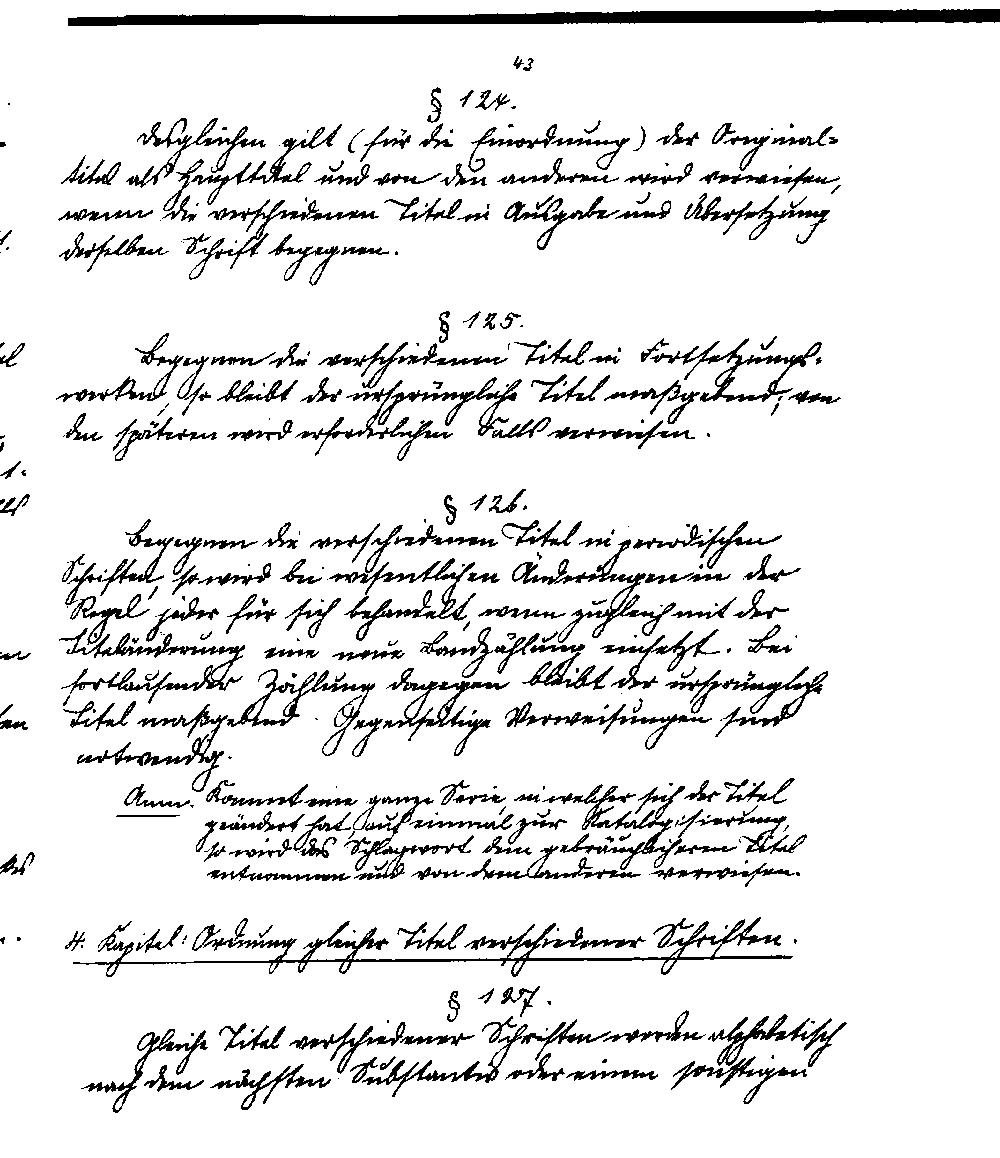 43
§ 124.
Desgleichen gilt (für die Einordnung) der Original-
titel als Haupttitel und von den anderen wird verwiesen,
wenn die verschiedenen Titel in Ausgabe und Übersetzung
derselben Schrift begegnen.
§ 125.
Begegnen die verschiedenen Titel in Fortsetzungs-
werken, so bleibt der ursprüngliche Titel maßgebend, von
den späteren wird erforderlichen Falls verwiesen.
§ 126.
Begegnen die verschiedenen Titel in periodischen
Schriften, so wird bei wesentlichen Änderungen in der
Regel jeder für sich behandelt, wenn zugleich mit der
Titeländerung eine neue Bandzählung einsetzt. Bei
fortlaufender Zählung dagegen bleibt der ursprüngliche
Titel maßgebend. Gegenseitige Verweisungen sind
notwendig.
Anm. Kommt eine ganze Serie, in welcher sich der Titel
geändert hat, auf einmal zur Katalogisierung,
so wird das Schlagwort dem gebräuchlicheren Titel
entnommen und von dem anderen verwiesen.
4. Kapitel: Ordnung gleicher Titel verschiedener Schriften.
§ 127.
Gleiche Titel verschiedener Schriften werden alphabetisch
nach dem nächsten Substantiv oder einem sonstigen